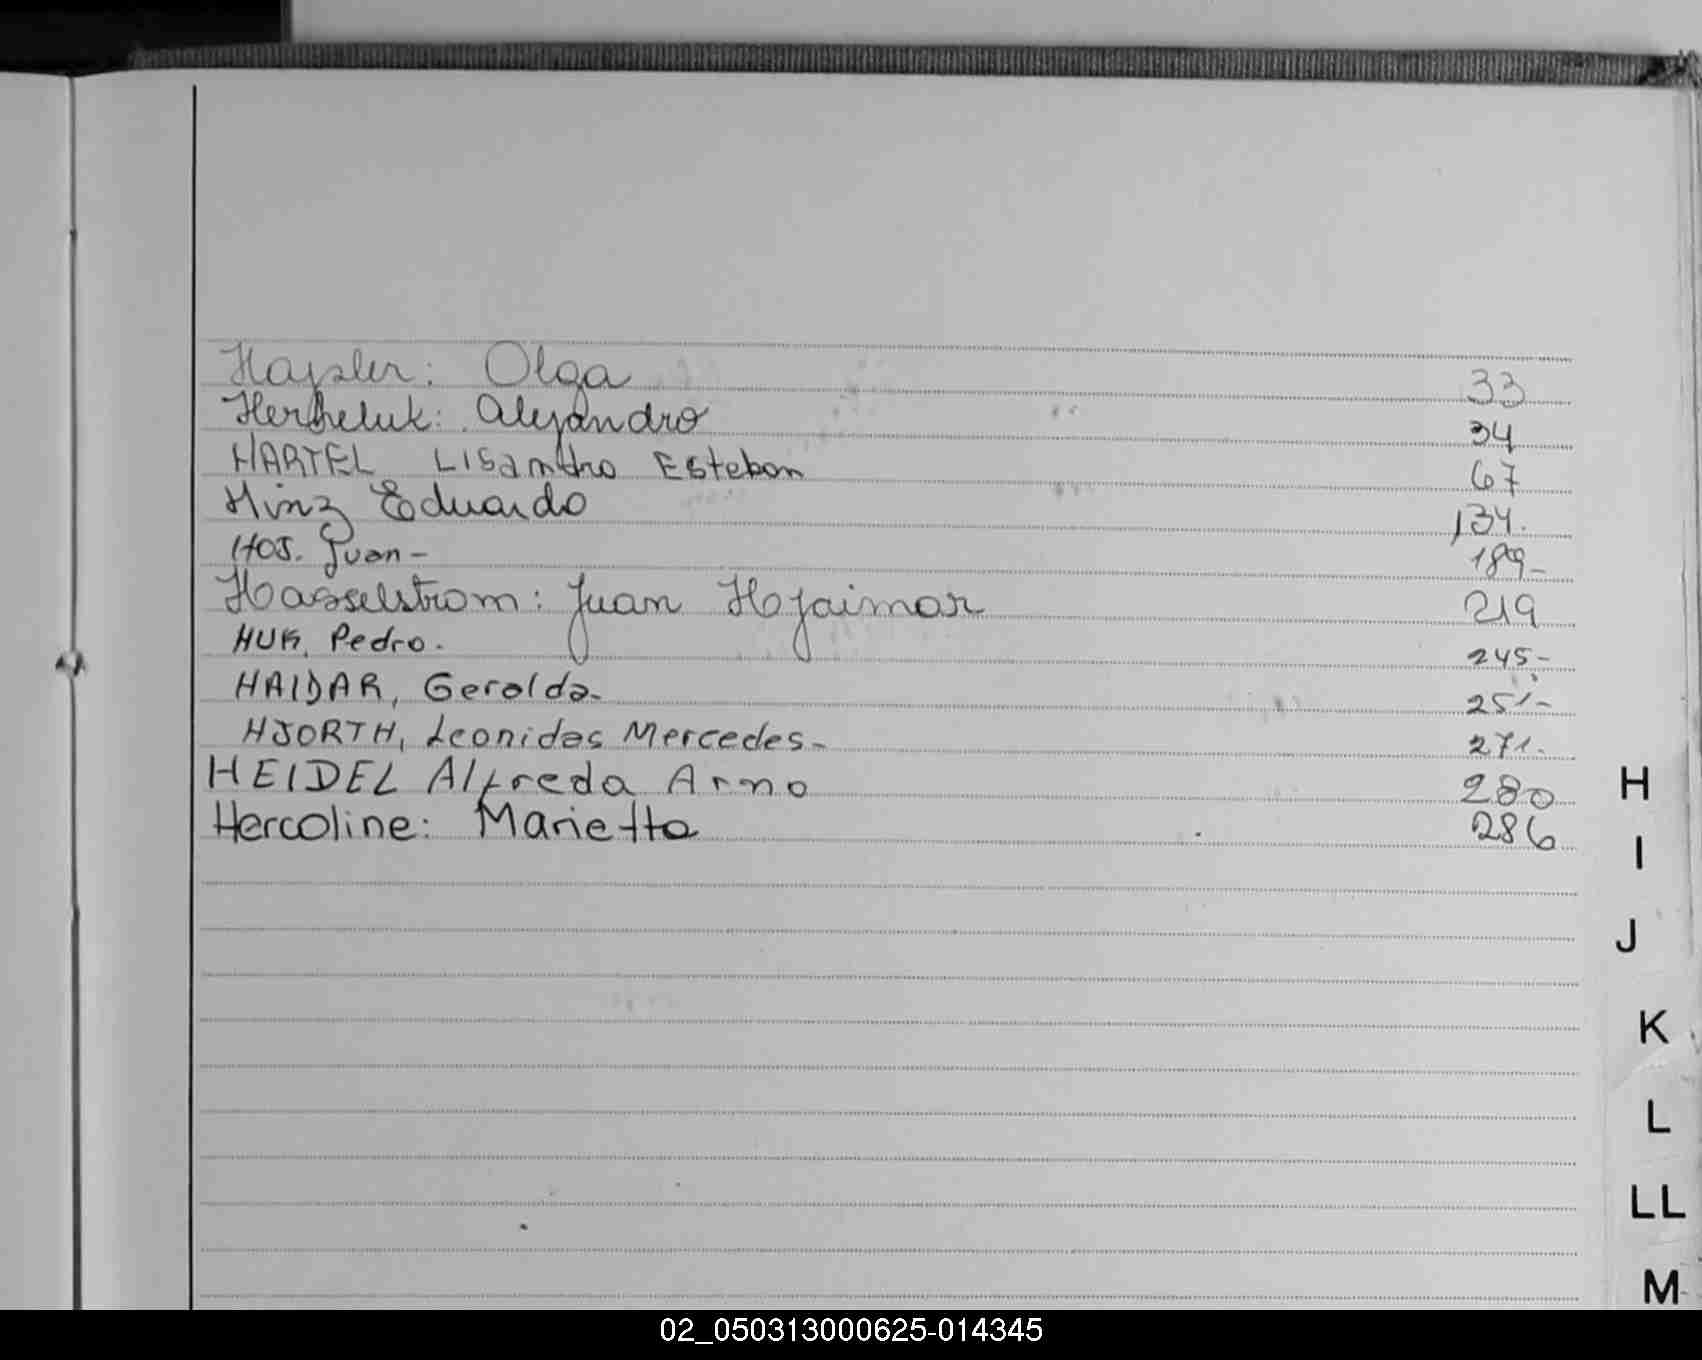 Hapsler: Olga 33
Hercheluk: Alejandro 34
HARTEL Lisandro Esteban 67
Hinz Eduardo 134.
HOJ. Juan- 189-
Hasselstrom: Juan Hjaimar 219
HUK, Pedro. 245-
HAIDAR, Geralda- 251-
HJORTH, Leonidas Mercedes- 271-
HEIDEL Alfreda Arno 280
Hercoline: Marietta 286
H
I
J
K
L
LL
M
02_050313000625-014345